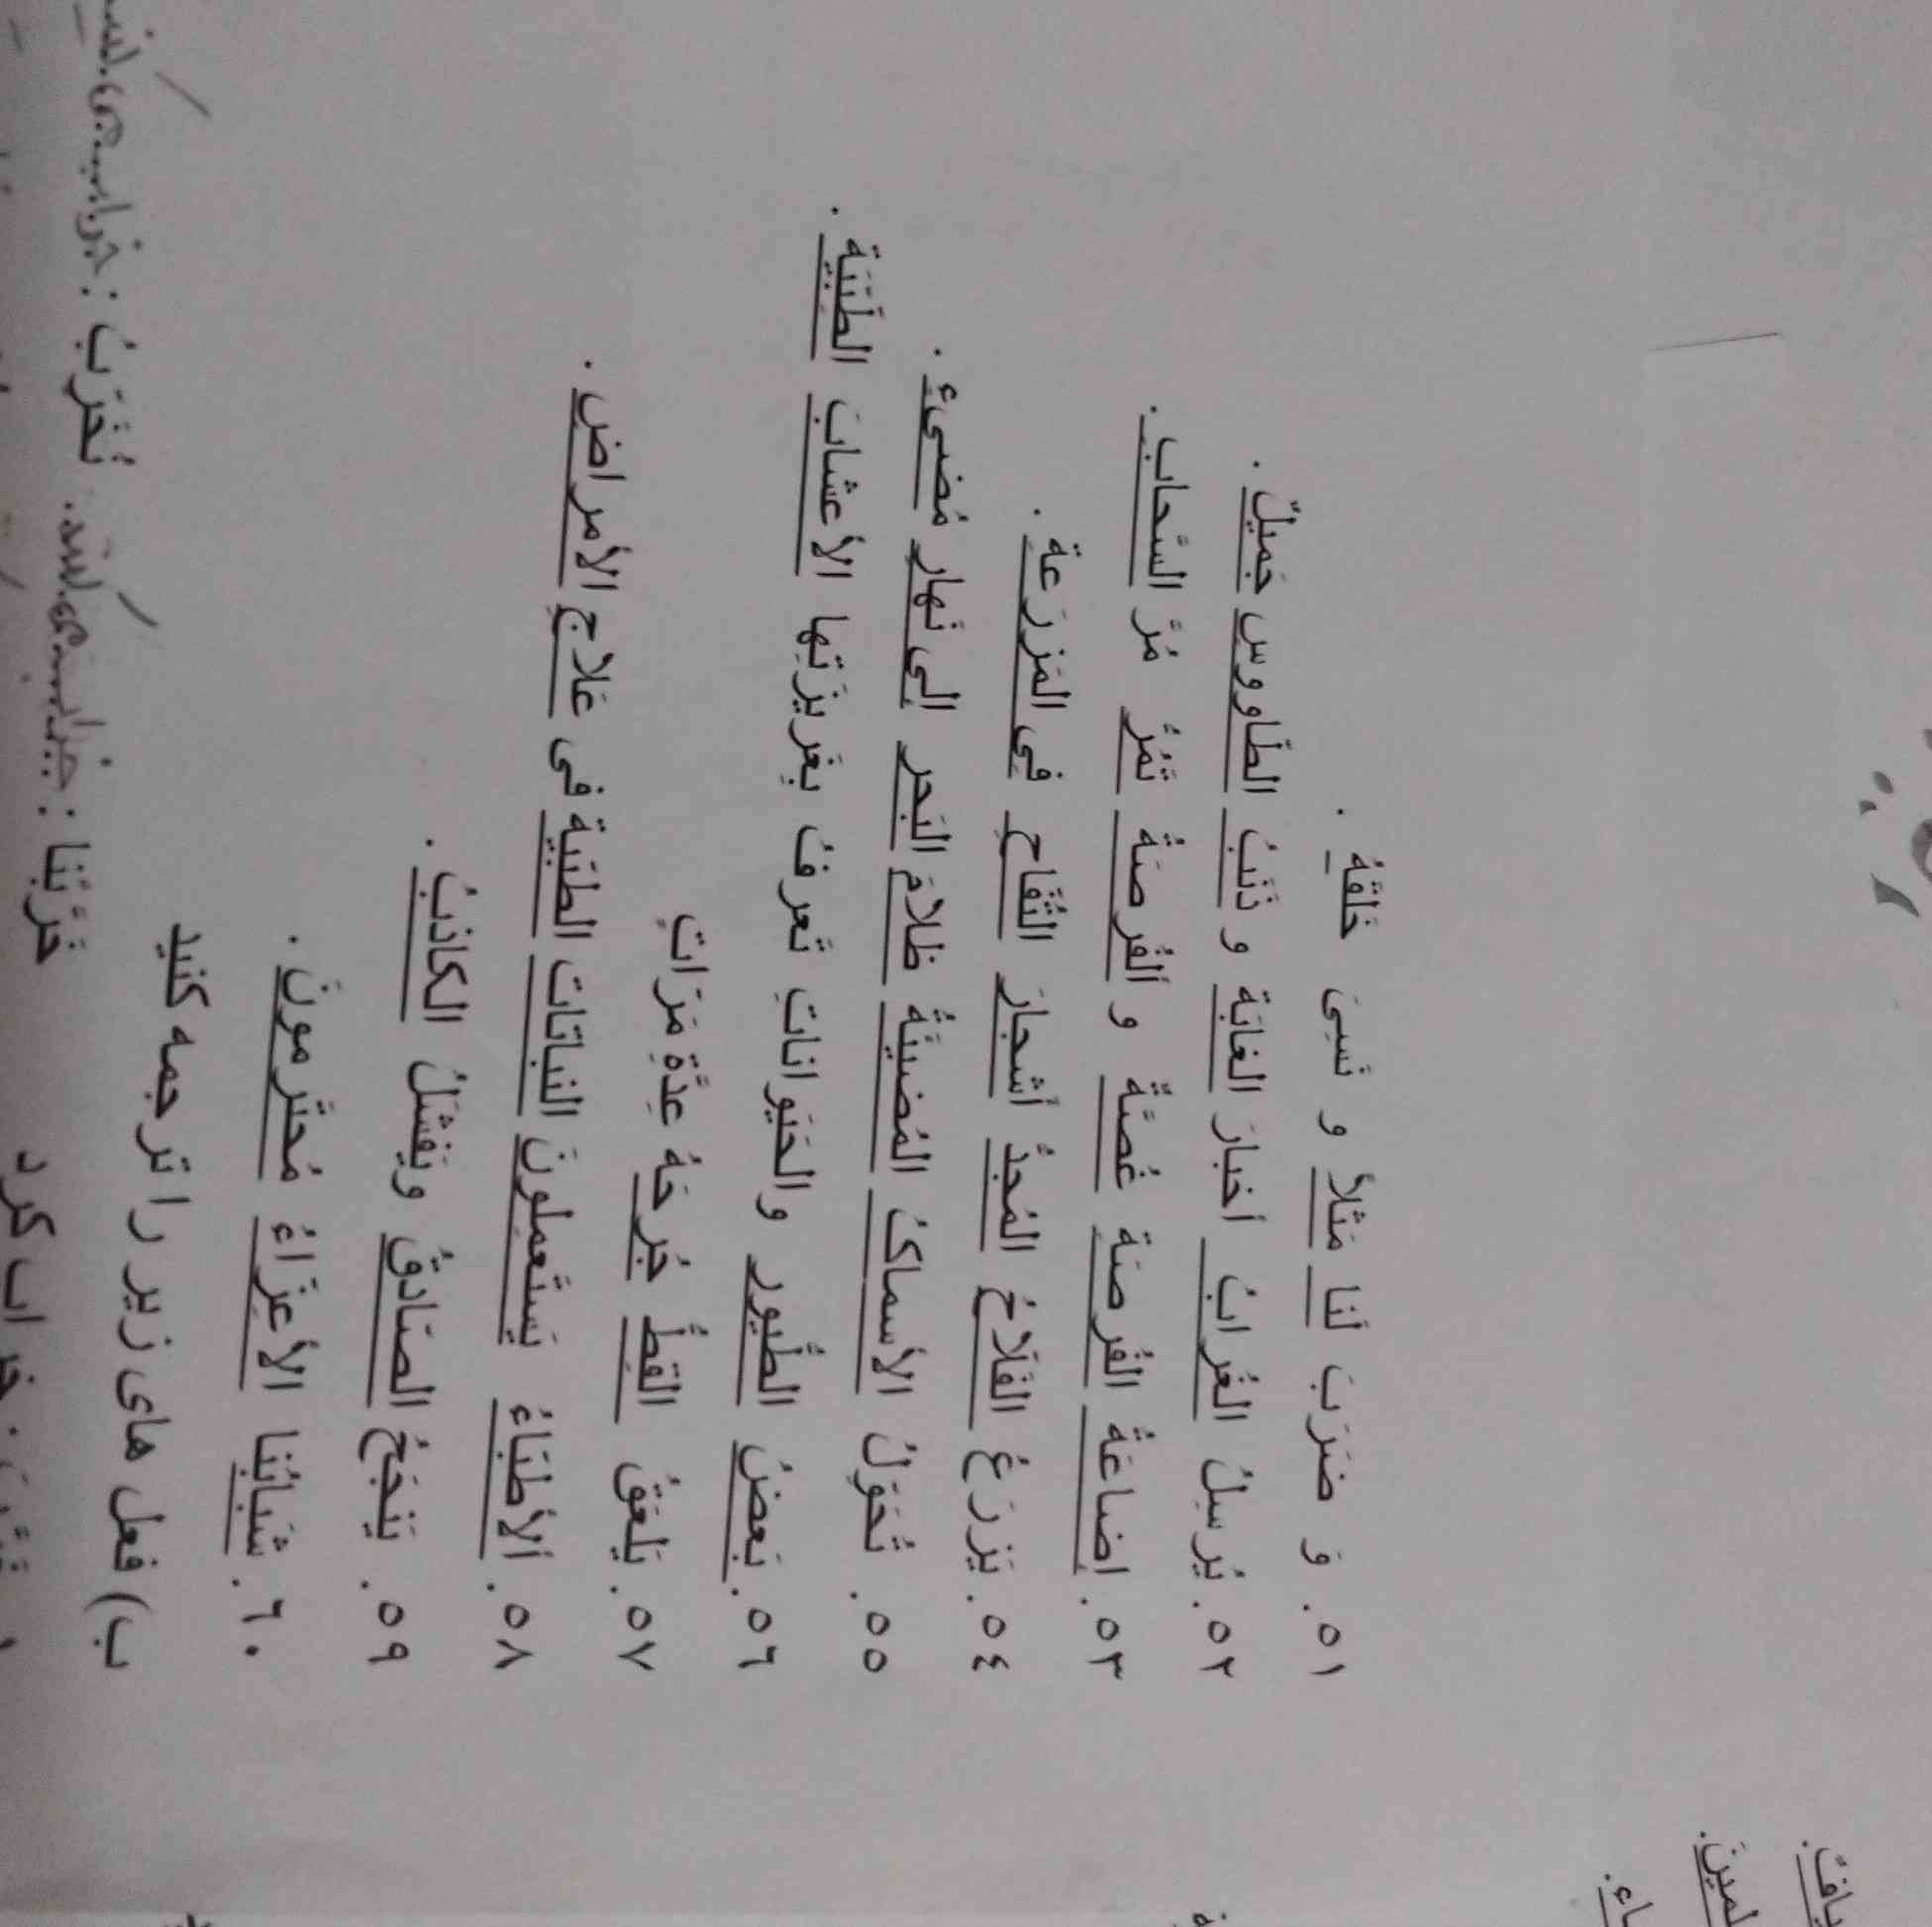 ٥١. وَ ضَرَبَ لَنا مَثَلاً و نَسِىَ خَلقَهُ .
٥٢. یُرسِلُ الغُرابُ أخبارَ الغابَة و ذَنَبُ الطّاووسِ جَمیلٌ .
٥٣. إضاعَةُ الفُرصَةِ غُصَّةٌ و اَلفُرصَةُ تَمُرُّ مَرَّ السَّحابِ.
٥٤. یَزرَعُ الفَلّاحُ المُجِدُّ أشجارَ التُفّاحِ فِی المَزرَعَةِ .
٥٥. تُحَوِّلُ الأسماكُ المُضیئَةُ ظَلامَ البَحرِ إلی نَهارٍ مُضیءٍ .
٥٦. بَعضُ الطُّیورِ والحَیَواناتِ تَعرِفُ بِغَریزَتِها الأعشابَ الطِّبیَّة .
٥٧. یَلعَقُ القِطُّ جُرحَهُ عِدَّةَ مَرّاتٍ
٥٨. اَلأطِبّاءُ یَستَعمِلونَ النباتات الطبیة فی عَلاجِ الأمراضِ .
٥٩. یَنجَحُ الصّادِقُ ویَفشَلُ الکاذِبُ .
٦٠. شَبابُنا الأعِزاءُ مُحتَرمونَ .
ب) فعل های زیر را ترجمه کنید
خَرَّبنا :
تُخَرِّبُ :
خراب کرد